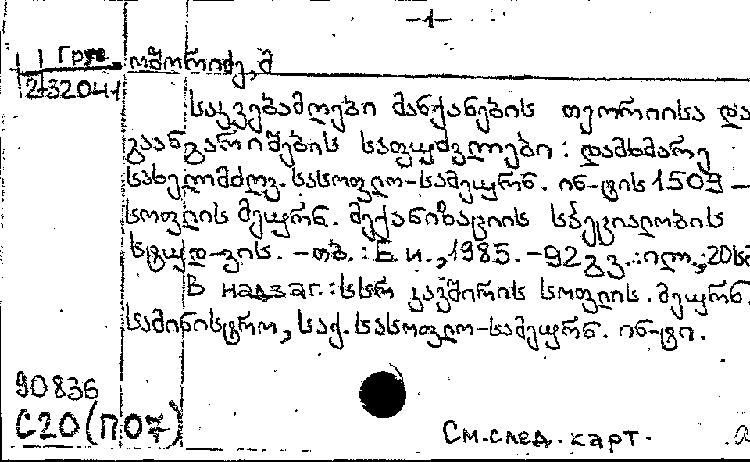 -1-
Груз. ომოროიძე, მ
2-32041
საკვებამღები მანქანების თეორიისა და
გაანგარიშების საფუძვლები : დამხმარე
სახელმძღვ. სასოფლო-სამეურნ. ინ-ტის 1509 —
სოფლის მეურნ. მექანიზაციის სპეციალობის
სტუდ-ვის. - თბ. : Б.и., 1985. - 92 გვ. : ილ.; 20 სმ
В надзаг.: სსრ კავშირის სოფლის. მეურნ.
სამინისტრო, საქ. სასოფლო-სამეურნ. ინ-ტი.
90836
С20(П07)
См. след. карт.